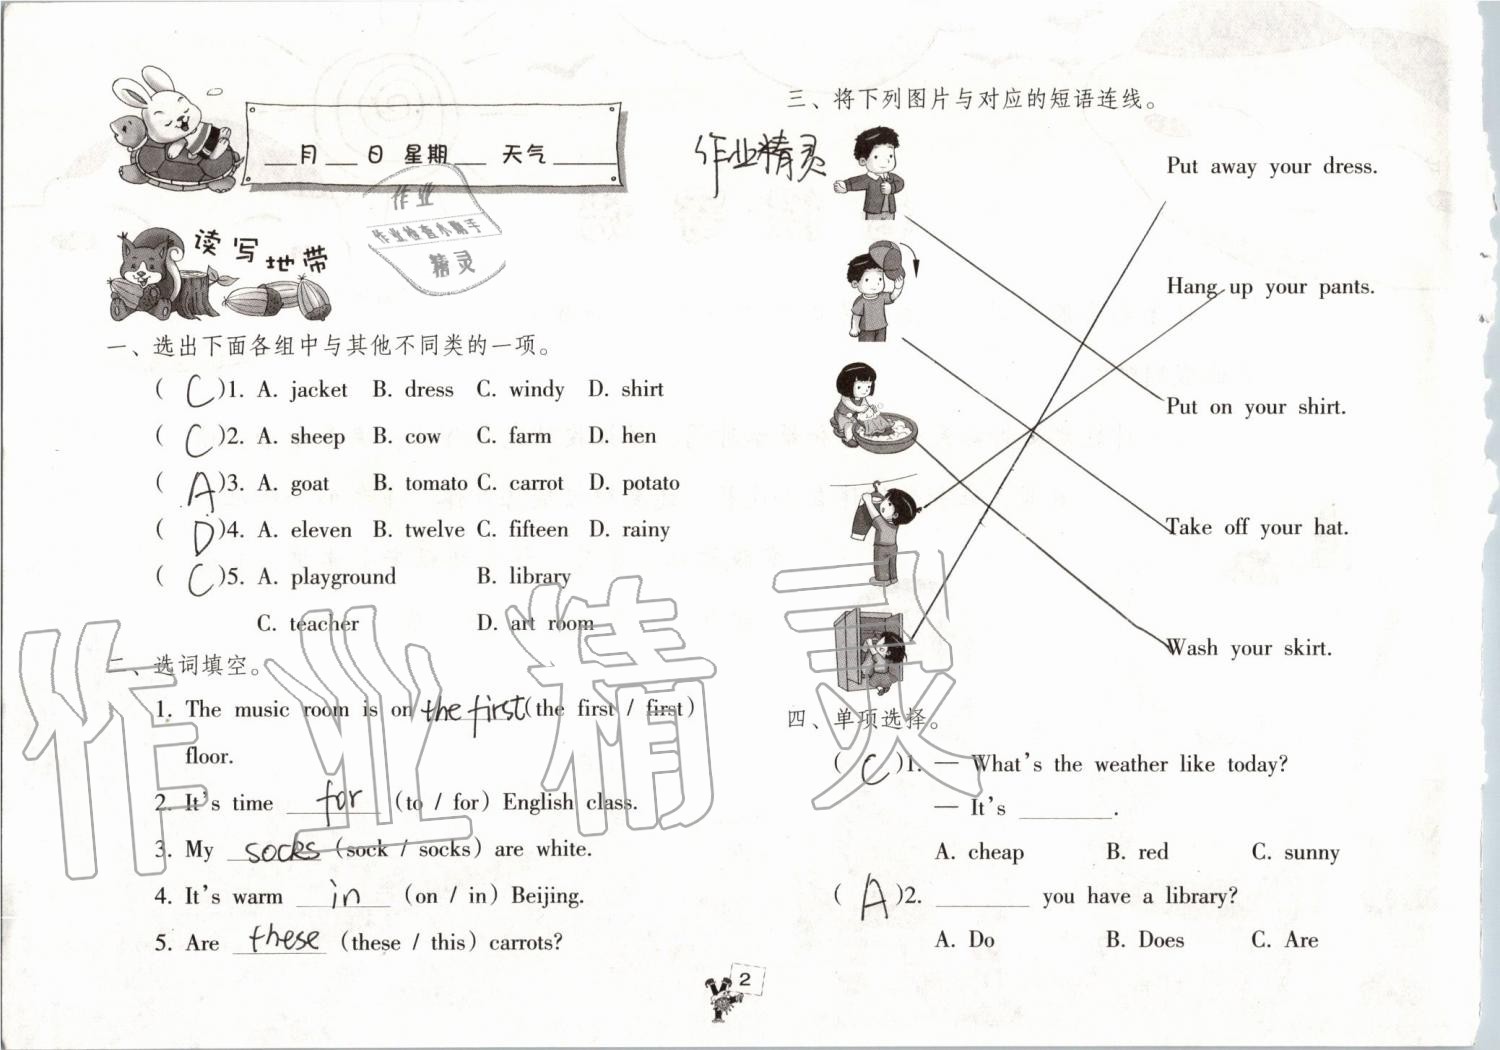 月 日 星期 天气
作业
作业检查小助手
精灵
读写地带
一、选出下面各组中与其他不同类的一项。
( C )1. A. jacket B. dress C. windy D. shirt
( C )2. A. sheep B. cow C. farm D. hen
( A )3. A. goat B. tomato C. carrot D. potato
( D )4. A. eleven B. twelve C. fifteen D. rainy
( C )5. A. playground B. library
C. teacher D. art room
二、选词填空。
1. The music room is on the first (the first / first)
floor.
2. It's time for (to / for) English class.
3. My socks (sock / socks) are white.
4. It's warm in (on / in) Beijing.
5. Are these (these / this) carrots?
作业精灵
三、将下列图片与对应的短语连线。
作业精灵
Put away your dress.
Hang up your pants.
Put on your shirt.
Take off your hat.
Wash your skirt.
四、单项选择。
( C )1. — What's the weather like today?
— It's ________.
A. cheap B. red C. sunny
( A )2. ________ you have a library?
A. Do B. Does C. Are
2